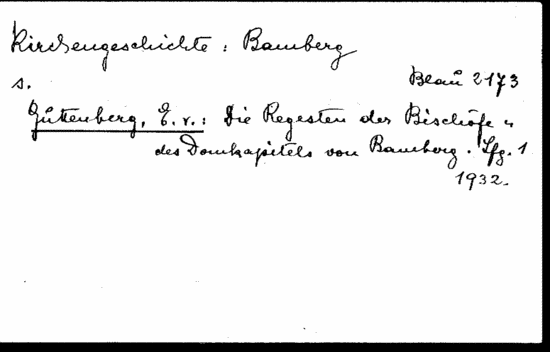 Kirchengeschichte: Bamberg
s. Blau 2173
Guttenberg, E. v.: Die Regesten der Bischöfe u
des Domkapitels von Bamberg. Lfg. 1
1932.